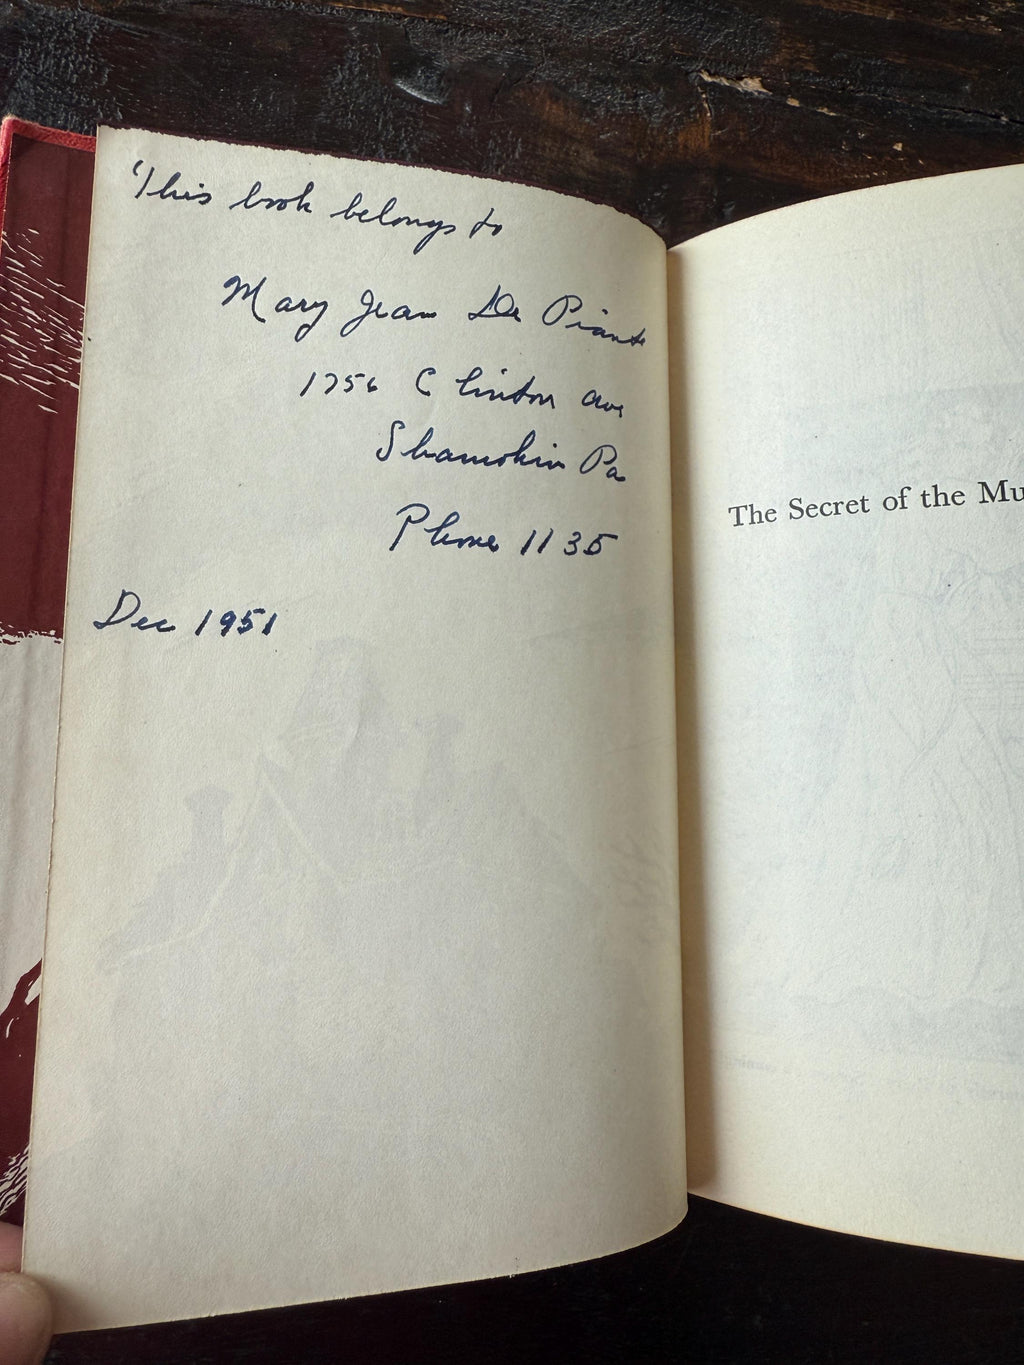 This book belongs to
Mary Jean De Piante
1756 Clinton ave
Shamokin Pa
Phone 1135
Dec 1951
The Secret of the Mu